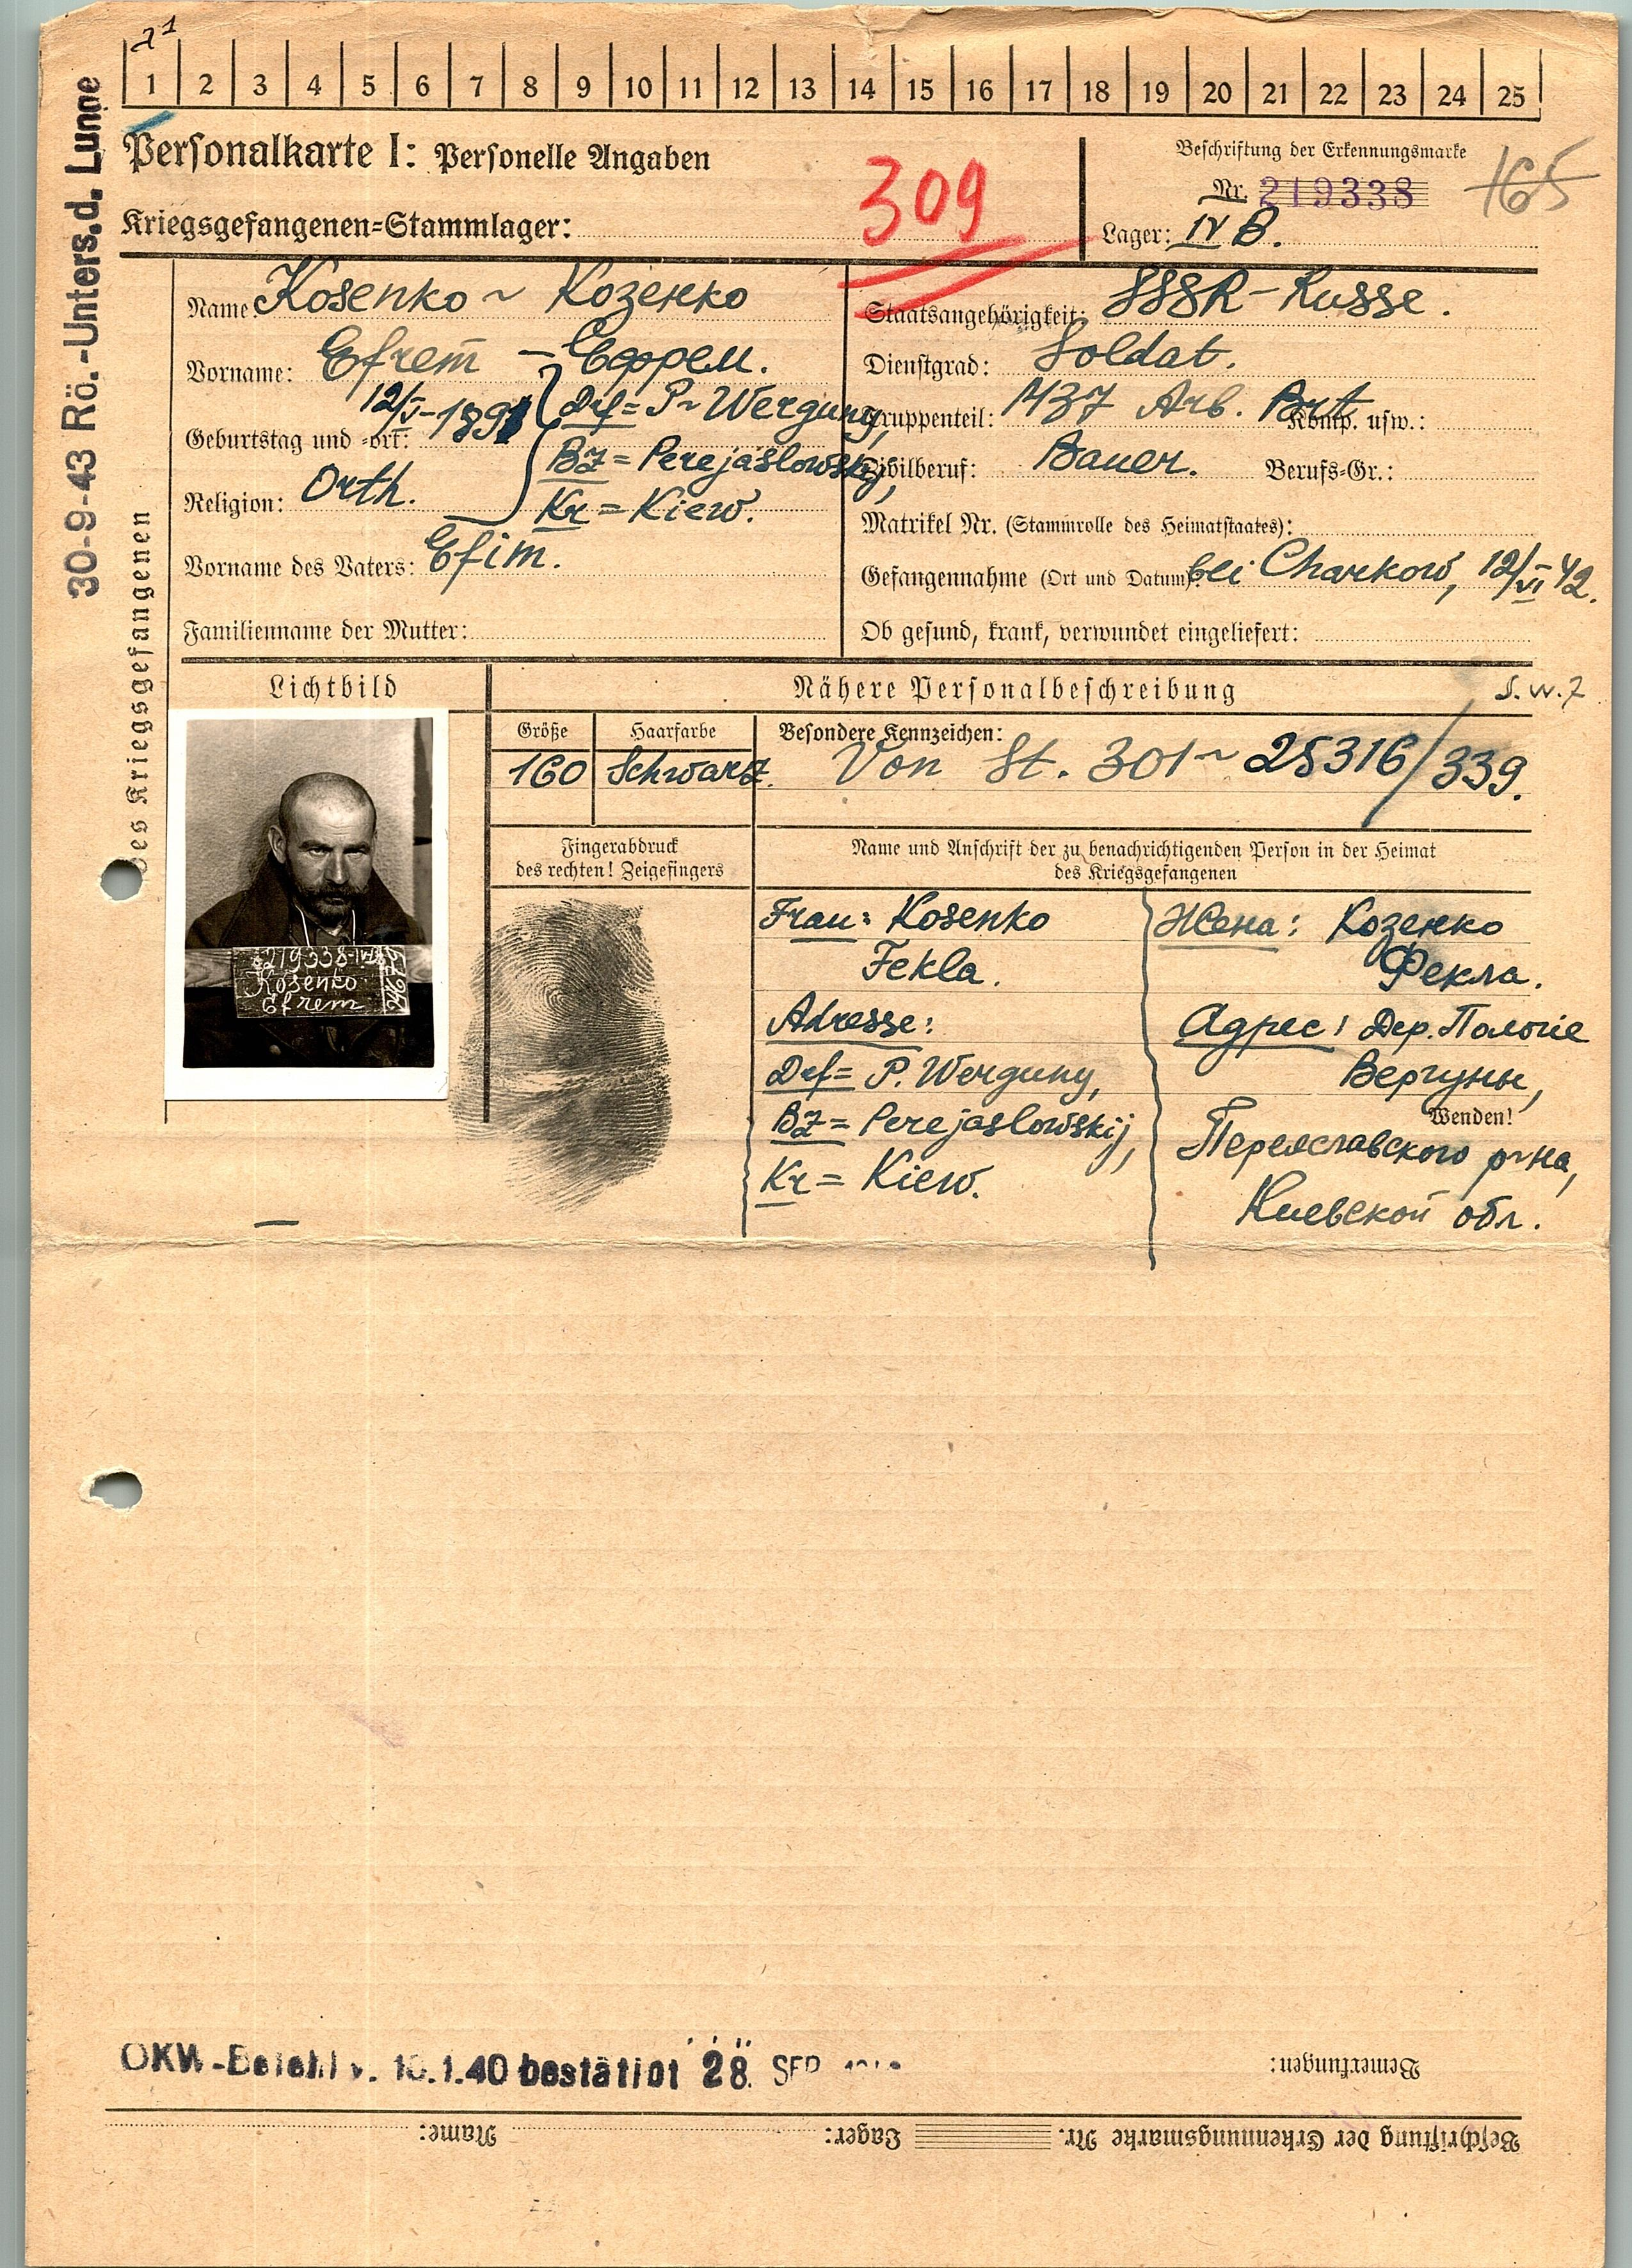 1 2 3 4 5 6 7 8 9 10 11 12 13 14 15 16 17 18 19 20 21 22 23 24 25
30-9-43 Rö.-Unters. d. Lunge
des Kriegsgefangenen
Personalkarte I: Personelle Angaben
309
Beschriftung der Erkennungsmarke
Nr. 219338
165
Kriegsgefangenen=Stammlager:
Lager: IV B.
Name: Kosenko ~ Козенко
Vorname: Efrem – Ефрем.
Geburtstag und =ort: 12/V-1891
Drf= P~ Werguny,
BZ= Perejaslowskij,
Kr= Kiew.
Religion: Orth.
Vorname des Vaters: Efim.
Familienname der Mutter:
Staatsangehörigkeit: SSSR-Russe.
Dienstgrad: Soldat.
Truppenteil: 1437 Arb. Komp. usw.:
Zivilberuf: Bauer. Berufs-Gr.:
Matrikel Nr. (Stammrolle des Heimatstaates):
Gefangennahme (Ort und Datum): bei Charkow, 12/VI 42.
Ob gesund, krank, verwundet eingeliefert:
Lichtbild
Nähere Personalbeschreibung
S.w.7
Größe Haarfarbe Besondere Kennzeichen:
160 Schwarz. Von St. 301 ~ 25316/339.
Fingerabdruck
des rechten! Zeigefingers
Name und Anschrift der zu benachrichtigenden Person in der Heimat
des Kriegsgefangenen
219338-IVB
Kosenko
Efrem
Frau: Kosenko
Fekla.
Adresse:
Drf= P. Werguny,
BZ= Perejaslowskij,
Kr= Kiew.
Жена: Козенко
Фекла.
Адрес: Дер. Пологие
Вергуны,
Wenden!
Переяславского р-на,
Киевской обл.
OKW-Befehl v. 10.1.40 bestätigt 28. SEP.
Bemerkungen:
Beschriftung der Erkennungsmarke Nr. Lager: Name: